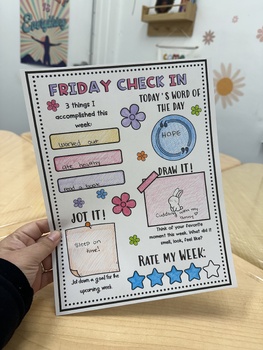 Everything
FRIDAY CHECK IN
3 things I
accomplished this
week:
worked out
ate healthy
read a book
TODAY'S WORD OF
THE DAY
HOPE
DRAW IT!
Cuddling
my
bunny
JOT IT!
sleep on
time!
Jot down a goal for the
upcoming week
Think of your favorite
moment this week. What did it
smell, look, feel like?
RATE MY WEEK: